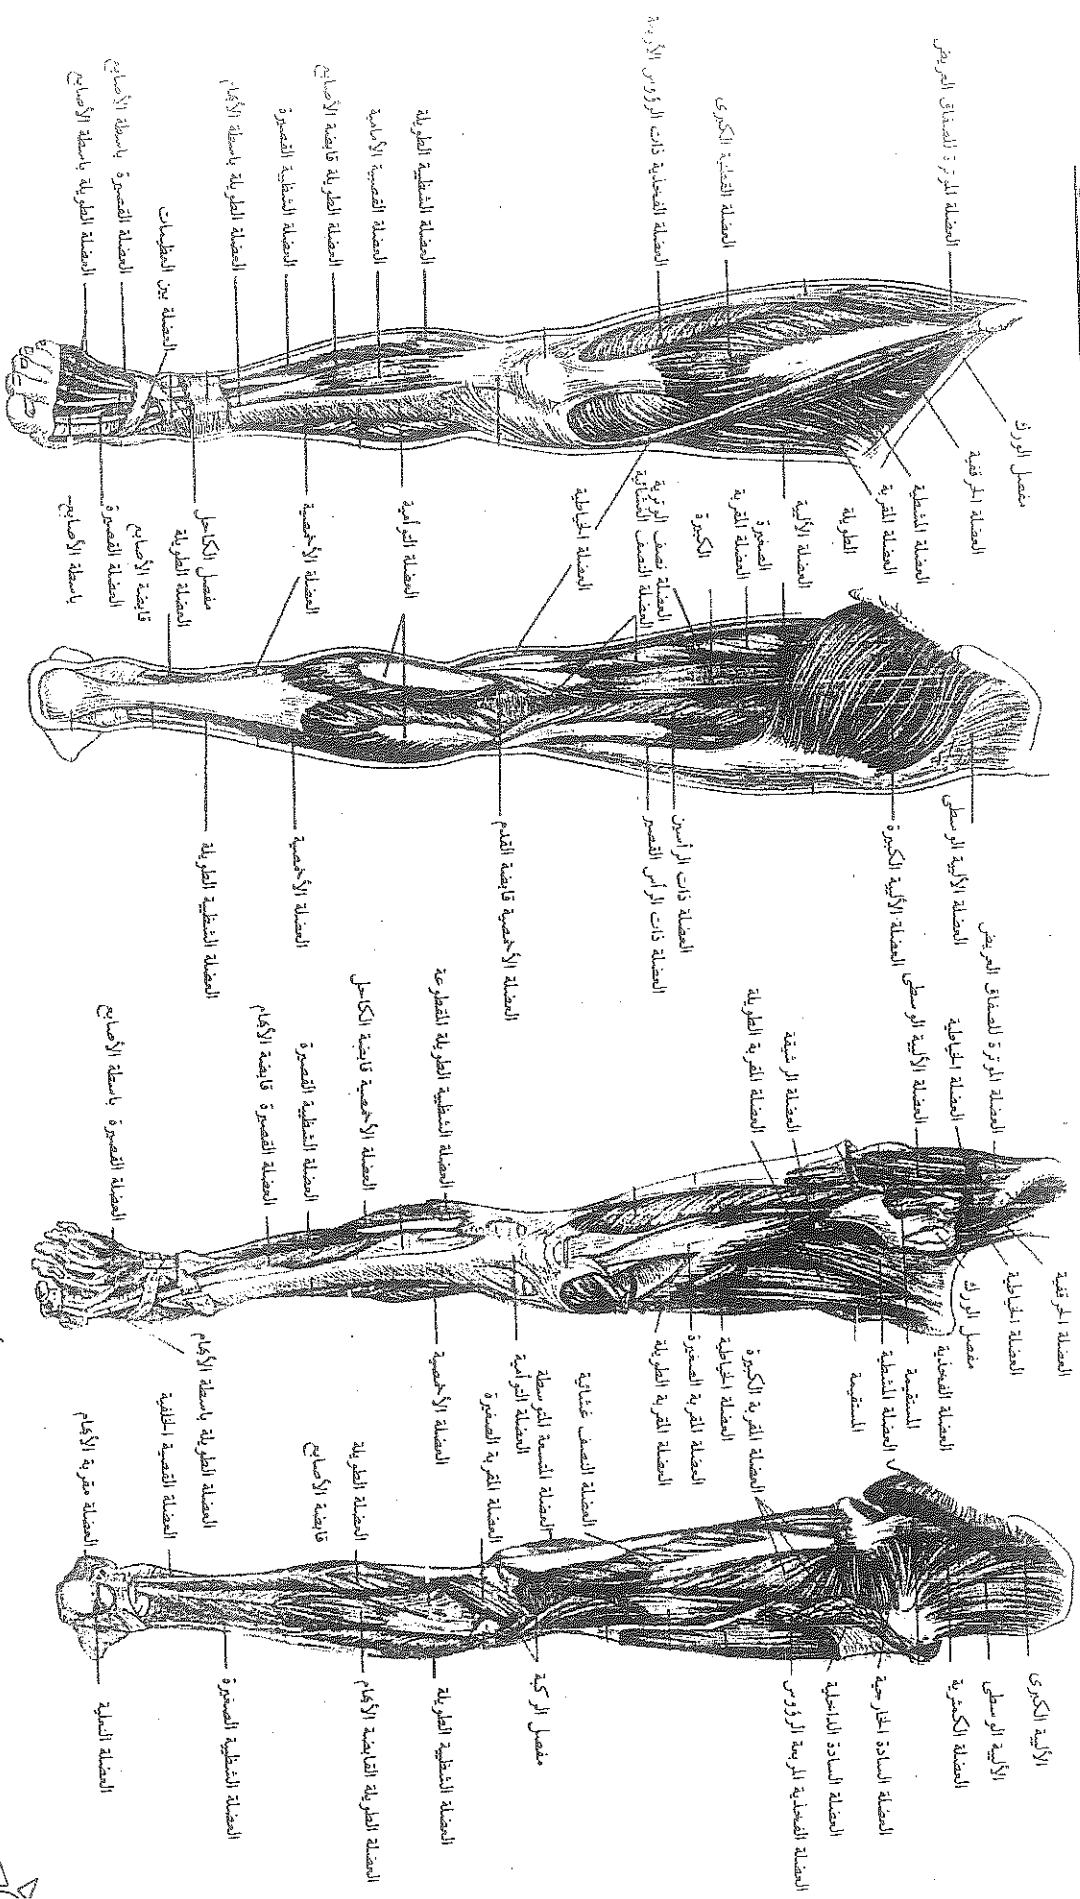 العضلة الموترة للصفاق العريض
العضلة الفخذية الكبرى
العضلة الفخذية ذات الرؤوس الأربعة
العضلة الشظية الطويلة
العضلة القصبية الأمامية
العضلة الطويلة قابضة الأصابع
العضلة الشظية القصيرة
العضلة الطويلة باسطة الأبهام
العضلة بين العظيمات
العضلة القصيرة باسطة الأصابع
العضلة الطويلة باسطة الأصابع
مفصل الورك
العضلة الحرقفية
العضلة المشطية
العضلة المقربة
الطويلة
العضلة الألية
الصغيرة
العضلة المقربة
الكبيرة
العضلة نصف الوترية
العضلة النصف الغشائية
العضلة الخياطية
العضلة التوأمية
العضلة الأخمصية
مفصل الكاحل
العضلة الطويلة
قابضة الأصابع
العضلة القصيرة
باسطة الأصابع
العضلة الألية الوسطى
العضلة الألية الكبيرة
العضلة ذات الرأسين
العضلة ذات الرأس القصير
العضلة الأخمصية قابضة القدم
العضلة الأخمصية
العضلة الشظية الطويلة
العضلة الموترة للصفاق العريض
العضلة الخياطية
العضلة الألية الوسطى
العضلة الرشيقة
العضلة المقربة الطويلة
العضلة الشظية الطويلة المقطوعة
العضلة الأخمصية قابضة الكاحل
العضلة الشظية القصيرة
العضلة القصيرة قابضة الأبهام
العضلة القصيرة باسطة الأصابع
العضلة الحرقفية
العضلة الخياطية
مفصل الورك
العضلة الفخذية
المستقيمة
العضلة المشطية
المستقيمة
العضلة المقربة الكبيرة
العضلة الخياطية
العضلة المقربة الصغيرة
العضلة المقربة الطويلة
العضلة النصف غشائية
العضلة المتسعة المتوسطة
العضلة التوأمية
العضلة المقربة الصغيرة
العضلة الأخمصية
العضلة الطويلة
قابضة الأصابع
العضلة الطويلة باسطة الأبهام
العضلة القصبية الخلفية
العضلة مقربة الأبهام
الألية الكبرى
الألية الوسطى
العضلة الكمثرية
العضلة السادة الخارجية
العضلة السادة الداخلية
العضلة الفخذية المربعة الرؤوس
مفصل الركبة
العضلة الشظية الطويلة
العضلة الطويلة القابضة الأبهام
العضلة الشظية الصغيرة
العضلة النعلية